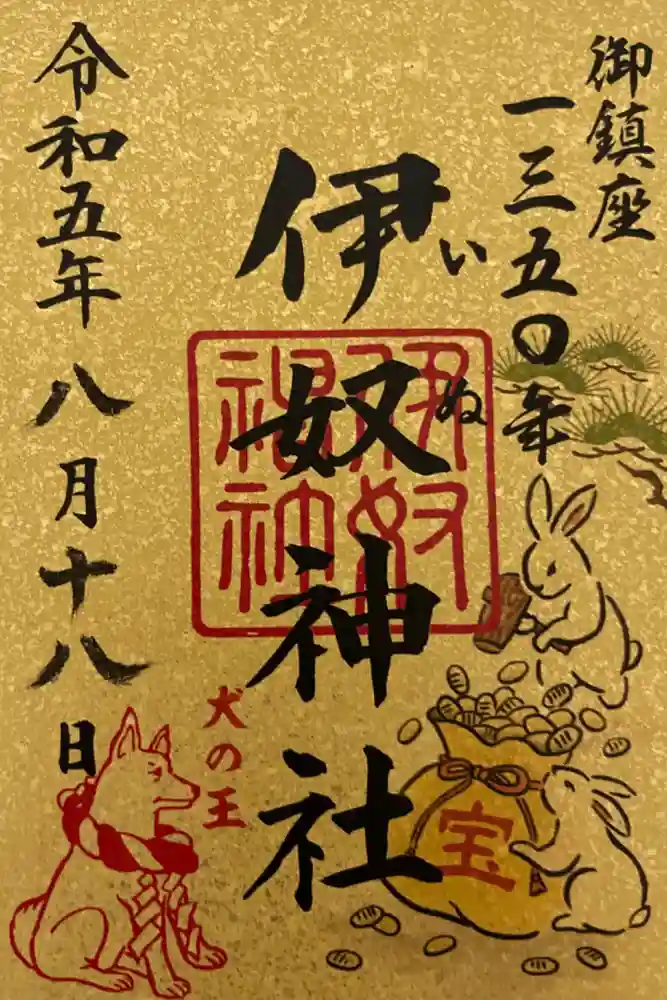 御鎮座
一三五〇年
伊奴神社
いぬ
伊奴
神社
令和五年八月十八日
犬の王
宝